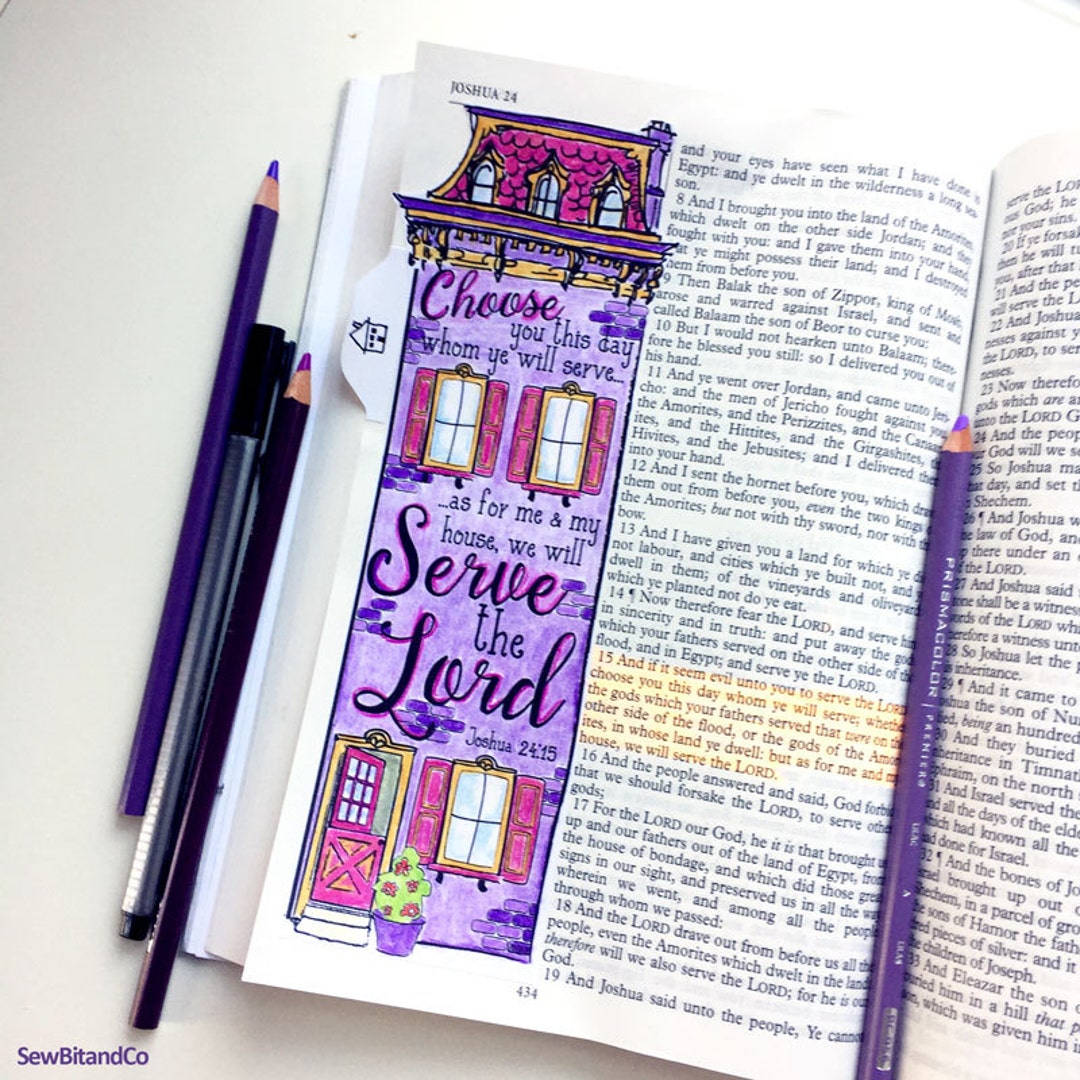 JOSHUA 24
Choose
you this day
whom ye will serve...
...as for me & my
house, we will
Serve
the
Lord
Joshua 24:15
and your eyes have seen what I have done in
Egypt: and ye dwelt in the wilderness a long sea-
son.
8 And I brought you into the land of the Amorites,
which dwelt on the other side Jordan; and they
fought with you: and I gave them into your hand,
ye might possess their land; and I destroyed
them from before you.
9 Then Balak the son of Zippor, king of Moab,
arose and warred against Israel, and sent and
called Balaam the son of Beor to curse you:
10 But I would not hearken unto Balaam; there-
fore he blessed you still: so I delivered you out of
his hand.
11 And ye went over Jordan, and came unto Jeri-
cho: and the men of Jericho fought against you,
the Amorites, and the Perizzites, and the Canaan-
ites, and the Hittites, and the Girgashites, the
Hivites, and the Jebusites; and I delivered them
into your hand.
12 And I sent the hornet before you, which drave
them out from before you, even the two kings of
the Amorites; but not with thy sword, nor with thy
bow.
13 And I have given you a land for which ye did
not labour, and cities which ye built not, and ye
dwell in them; of the vineyards and oliveyards
which ye planted not do ye eat.
14 ¶ Now therefore fear the LORD, and serve him
in sincerity and in truth: and put away the gods
which your fathers served on the other side of the
flood, and in Egypt; and serve ye the LORD.
15 And if it seem evil unto you to serve the LORD,
choose you this day whom ye will serve; whether
the gods which your fathers served that were on the
other side of the flood, or the gods of the Amor-
ites, in whose land ye dwell: but as for me and my
house, we will serve the LORD.
16 And the people answered and said, God forbid
that we should forsake the LORD, to serve other
gods;
17 For the LORD our God, he it is that brought us
up and our fathers out of the land of Egypt, from
the house of bondage, and which did those great
signs in our sight, and preserved us in all the way
wherein we went, and among all the people
through whom we passed:
18 And the LORD drave out from before us all the
people, even the Amorites which dwelt in the land:
therefore will we also serve the LORD; for he is our
God.
19 And Joshua said unto the people, Ye cannot
434
serve the LORD
ous God; he
nor your sins.
20 If ye forsake
then he will tu
you, after that
21 And the pe
will serve the L
22 And Joshua
nesses against y
the LORD, to ser
nesses.
23 Now therefor
gods which are am
unto the LORD G
24 And the peop
God will we s
25 So Joshua ma
that day, and set th
Shechem.
26 ¶ And Joshua w
law of God, and
up there under an
the LORD.
27 And Joshua said
stone shall be a witness
words of the LORD wh
therefore a witness unto
28 So Joshua let the p
inheritance.
29 ¶ And it came to
Joshua the son of Nun
died, being an hundred
30 And they buried
inheritance in Timnath
Ephraim, on the north
31 And Israel served the
and all the days of the elde
which had known all the
had done for Israel.
32 ¶ And the bones of Jo
Israel brought up out
Shechem, in a parcel of gro
the sons of Hamor the fath
pieces of silver: and it
the children of Joseph.
33 And Eleazar the son o
buried him in a hill that p
son, which was given him i
PRISMACOLOR | PREMIER
LILAC
SewBitandCo